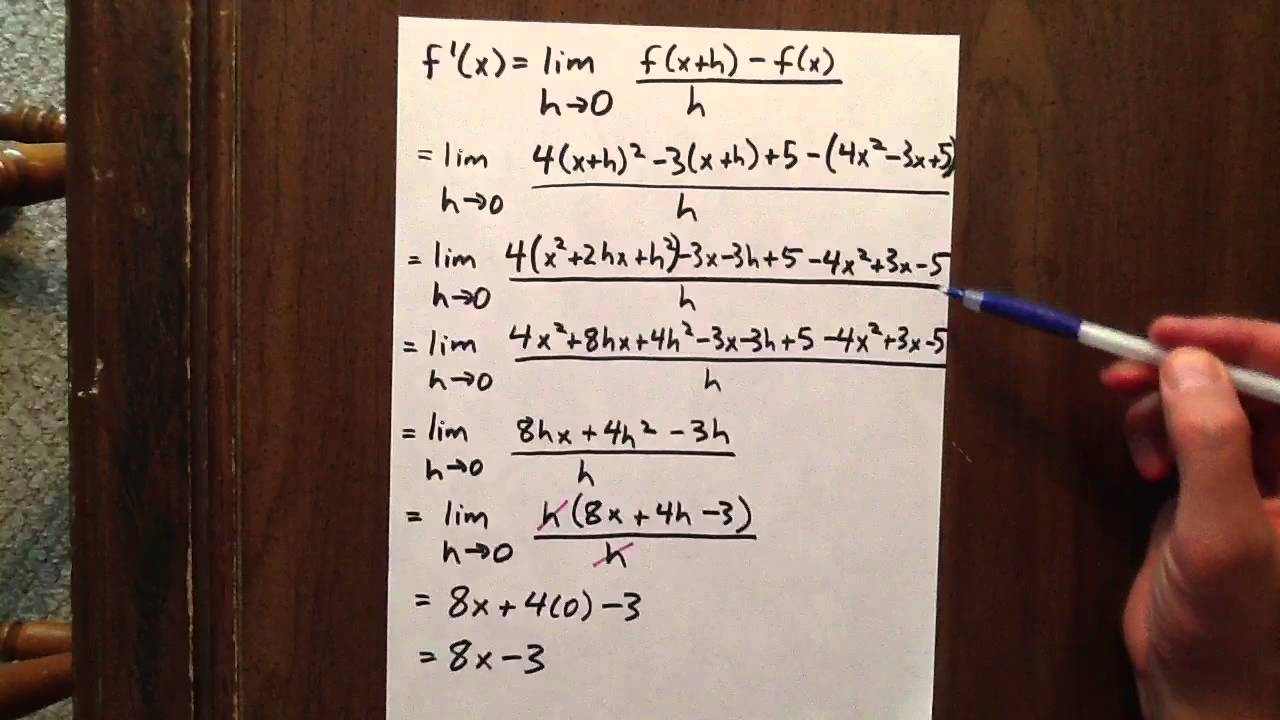 f'(x) = lim h→0 f(x+h) - f(x) / h
= lim h→0 4(x+h)² - 3(x+h) + 5 - (4x² - 3x + 5) / h
= lim h→0 4(x² + 2hx + h²) - 3x - 3h + 5 - 4x² + 3x - 5 / h
= lim h→0 4x² + 8hx + 4h² - 3x - 3h + 5 - 4x² + 3x - 5 / h
= lim h→0 8hx + 4h² - 3h / h
= lim h→0 h(8x + 4h - 3) / h
= 8x + 4(0) - 3
= 8x - 3